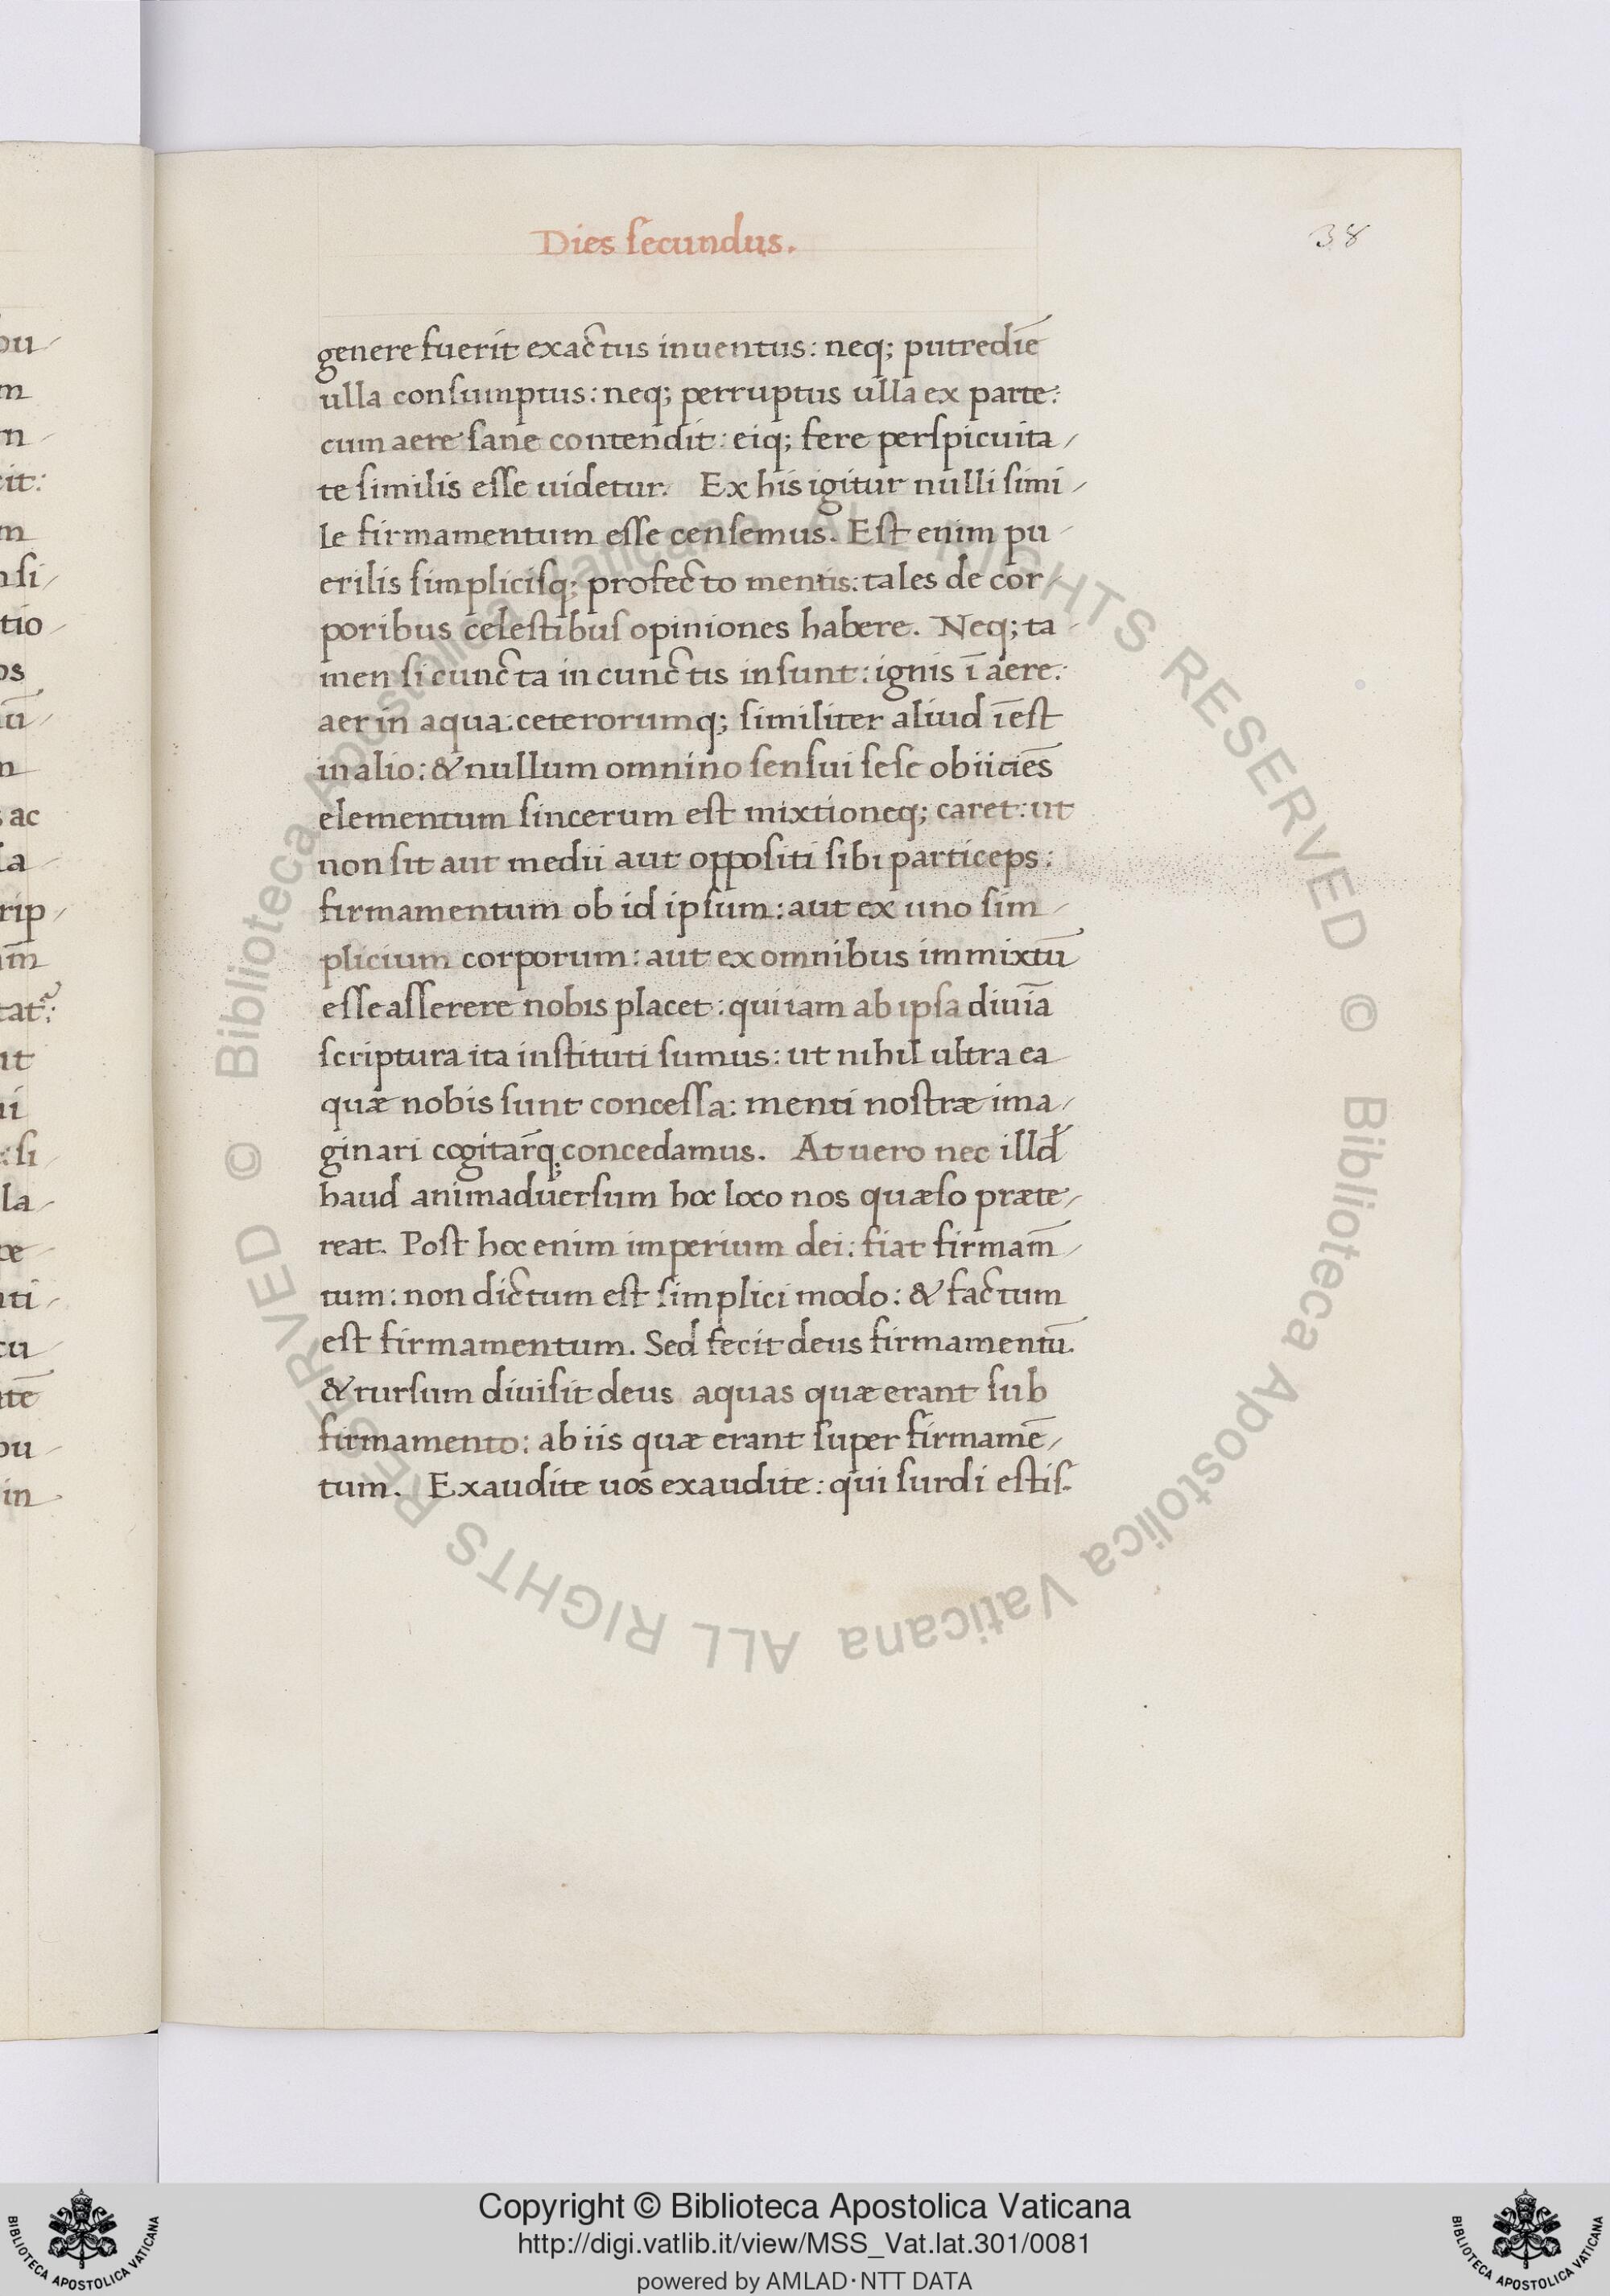 Dies secundus.
38
genere fuerit exactus inuentus: neq; putrediē
ulla consumptus: neq; perruptus ulla ex parte:
cum aere sane contendit: eiq; fere perspicuita-
te similis esse uidetur. Ex his igitur nulli simi-
le firmamentum esse censemus. Est enim pu-
erilis simplicisq; profecto mentis: tales de cor-
poribus celestibus opiniones habere. Neq; ta-
men si cuncta in cunctis insunt: ignis ī aere:
aer in aqua: ceterorumq; similiter aliud īest
in alio: & nullum omnino sensui sese obiiciēs
elementum sincerum est mixtioneq; caret: ut
non sit aut medii aut oppositi sibi particeps:
firmamentum ob id ipsum: aut ex uno sim-
plicium corporum: aut ex omnibus immixtū
esse asserere nobis placet: qui iam ab ipsa diuīa
scriptura ita instituti sumus: ut nihil ultra ea
quæ nobis sunt concessa: menti nostræ ima-
ginari cogitar̄q; concedamus. At uero nec illd̄
haud animaduersum hoc loco nos quæso præte-
reat. Post hoc enim imperium dei: fiat firmam̄-
tum: non dictum est simplici modo: & factum
est firmamentum. Sed fecit deus firmamentū.
& rursum diuisit deus aquas quæ erant sub
firmamento: ab iis quæ erant super firmamē-
tum. Exaudite uos exaudite: qui surdi estis.
© Biblioteca Apostolica Vaticana ALL RIGHTS RESERVED
© Biblioteca Apostolica Vaticana ALL RIGHTS RESERVED
Copyright © Biblioteca Apostolica Vaticana
http://digi.vatlib.it/view/MSS_Vat.lat.301/0081
powered by AMLAD·NTT DATA
BIBLIOTECA APOSTOLICA VATICANA
BIBLIOTECA APOSTOLICA VATICANA